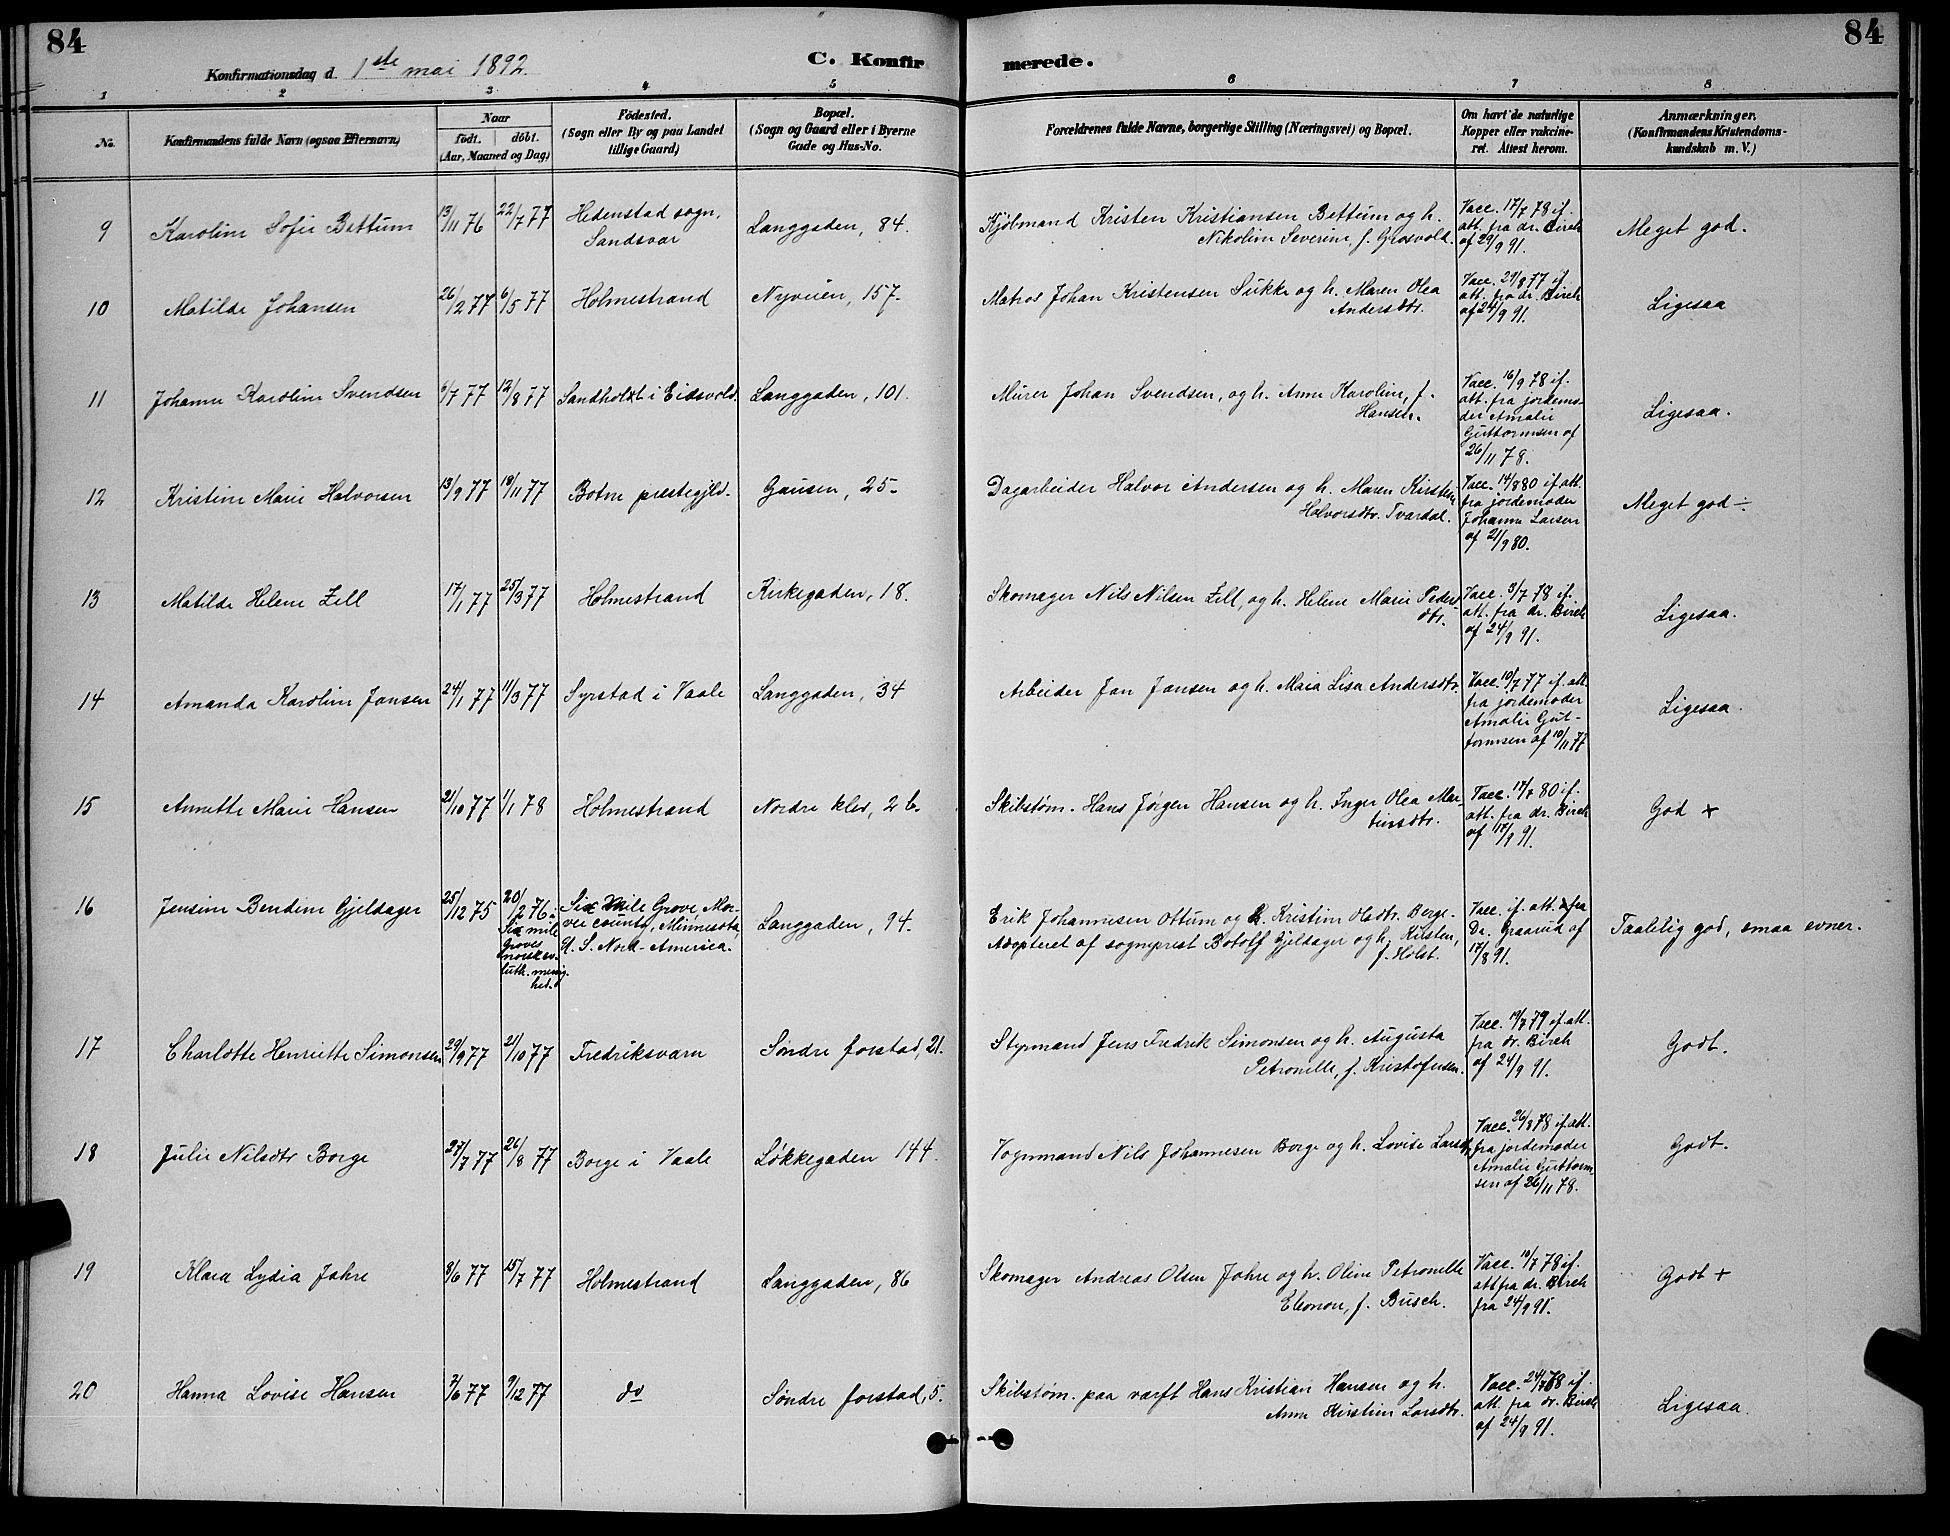 84
84
Konfirmationsdag d. 1ste mai 1892.
C. Konfirmerede.
1 2 3 4 5 6 7 8
No.
Konfirmandens fulde Navn (ogsaa Efternavn)
Naar
födt. döbt.
(Aar, Maaned og Dag)
Födested.
(Sogn eller By og paa Landet
tillige Gaard)
Bopæl.
(Sogn og Gaard eller i Byerne
Gade og Hus-No.
Forældrenes fulde Navne, borgerlige Stilling (Næringsvei) og Bopæl.
Om havt de naturlige
Kopper eller vakcine-
ret. Attest herom.
Anmærkninger.
(Konfirmandens Kristendoms-
kundskab m. V.)
9
Karoline Sofie Bettum
13/11 76
22/7 77
Hedenstad sogn,
Sandsvær
Langgaden, 84.
Kjölmand Kristen Kristiansen Bettum og h.
Nikoline Severine, f. Grosvold.
Vacc. 17/7 78 if.
att. fra dr. Birch
af 29/9 91.
Meget god.
10
Matilde Johansen
26/2 77
6/5 77
Holmestrand
Nyveien, 157.
Matros Johan Kristensen Sukke og h. Maren Olea
Andersdtr.
Vacc. 29/8 77 if.
att. fra dr. Birch
af 24/9 91.
Ligesaa
11
Johanne Karoline Svendsen
6/7 77
12/8 77
Sandholt i Eidsvold.
Langgaden, 101.
Murer Johan Svendsen, og h. Anne Karoline, f.
Hansen.
Vacc. 16/9 78 if.
att. fra jordemo-
der Amalie
Guttormsen af
26/11 78.
Ligesaa.
12
Kristine Marie Halvorsen
13/9 77
18/11 77
Botne prestegjld.
Gausen, 25.
Dagarbeider Halvor Andersen og h. Maren Kirstine
Halvorsdtr. Tvardal.
Vacc. 14/8 80 if att.
fra jordemoder
Johanne Larsen
af 21/9 80.
Meget god ÷.
13
Matilde Helene Zell
17/1 77
25/3 77
Holmestrand
Kirkegaden, 18.
Skomager Nils Nilsen Zell, og h. Helene Marie Peders
dtr.
Vacc. 3/7 78 if.
att. fra dr. Birch
af 24/9 91.
Ligesaa.
14
Amanda Karoline Jansen
24/1 77
11/3 77
Syrstad i Vaale
Langgaden, 34
Arbeider Jan Jansen og h. Maia Lisa Andersdtr.
Vacc. 10/7 77 if. att
fra jordemoder
Amalie Gut-
tormsen af 10/11 77
Ligesaa.
15
Annette Marie Hansen
21/10 77
1/1 78
Holmestrand
Nordre klev, 26.
Skibstøm. Hans Jörgen Hansen og h. Inger Olea Mar-
tinsdtr.
Vacc. 17/7 80 if.
att. fra dr. Birch
af 17/9 91.
God +
16
Jensine Bendine Gjeldager
25/12 75
20/2 76 i
Six mile
Groves
norsk ev.
luth. menig-
hed.
Six Mile Grove, Mor-
county, Minnesota,
U. S. Nord-America.
Langgaden, 94.
Erik Johannesen Ottum og h. Kristine Oledtr. Berge.
Adopteret af sogneprest Botolf Gjeldager og h. Kirsten,
f. Holst.
Vacc. if. att. fra
Dr. Graarud af
17/8 91.
Taalelig god, smaa evner.
17
Charlotte Henriette Simonsen
29/9 77
21/10 77
Fredriksværn
Søndre forstad, 21.
Styrmand Jens Fredrik Simonsen og h. Augusta
Petronelle, f. Kristofersen.
Vacc. 19/7 79 if att.
fra dr. Birch
af 24/9 91.
Godt.
18
Julie Nilsdtr Borge
27/7 77
26/8 77
Borge i Vaale
Løkkegaden 144.
Vognmand Nils Johannesen Borge og h. Lovise Larsdtr.
Vacc. 26/8 78 if att.
fra jordemoder
Amalie Guttorm-
sen af 26/11 78.
Godt.
19
Klara Lydia Jahre
8/6 77
15/7 77
Holmestrand
Langgaden, 86
Skomager Andreas Olsen Jahre og h. Oline Petronelle
Eleonore, f. Busch.
Vacc. 10/7 78 if.
att fra dr. Birch
fra 24/9 91.
Godt +
20
Hanna Lovise Hansen
2/6 77
9/12 77
do
Søndre forstad, 5.
Skibstøm. paa værft Hans Kristian Hansen og h.
Anne Kirstine Larsdtr.
Vacc. 24/7 78 if.
att. fra dr. Birch
af 24/9 91.
Ligesaa.